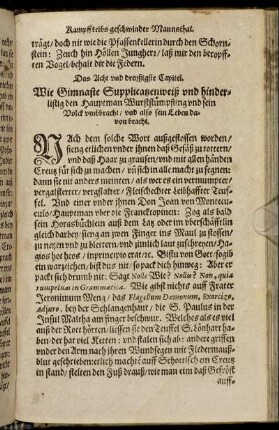 Kampffleibs geschwinder Mannschaf.
trägt/ doch nit wie die Pfaffenkellerin durch den Schorn-
stein: Zeuch hin Höllen Jungherr/ laß mir den beropff-
ten Vogel/ behalt dir die Federn.
Das Acht vnd dreyssigste Capitel.
Wie Gimnaste Supplicatzenweiß vnd hinder-
listig den Hauptman Wurstlstümpfling vnd sein
Volck vmbbracht/ vnd also sein Leben da-
von bracht.
NAch dem solche Wort außgestossen worden/
fieng etlichen vnder ihnen daß Gesäß zu tottern/
vnd daß Haar zu grausen/ vnd mit allen händen
Creutz für sich zu machen/ vnd sich in alle macht zu segnen:
dann sie nit anders meinten/ als wer es ein vermumpter/
vergaißterter/ vergstalter/ Fleischechter beidhaffter Teuf-
fel. Vnd einer vnder ihnen Don Joan von Montecu-
culo/ Hauptman vber die Francktopiner: Zog als bald
sein Horasbüchlin auß dem latz oder im vberschläfften
gleich darbey/ fieng an zwen Finger ins Maul zu stossen/
zu netzen vnd zu blettern/ vnd zimlich laut zuschreyen/ Ha-
gios hot heos/ inprincipio erat &c. Bistu von Gott/ so gib
ein warzeichen/ bist dus nit/ so pack dich hinweg: Aber er
packt sich drumb nit: Sagt Nolle Wir? Nollo? Non, quia
rumpetur in Grammatica. Wie gibst nichts auff Frater
Jeronimum Meng/ das Flagellum Dæmonum, Exorcizo,
Adjuro. bey der Schlangenhaut/ die S. Paulus in der
Insul Maltha am finger beschwur. Welches als es viel
auß der Rott hörten/ liessen sie den Teuffel S. Lönhart ha-
ben/ der hat vier Ketten: vnd stalen sich ab: andere griffen
vnder den Arm nach ihren Wundsegen mit Fledermauß-
blut geschrieben: etlich machtē auff Schottisch ein Creutz
in stand/ stelten den Fuß drauff/ wie man ein daß Gefröst
auff-